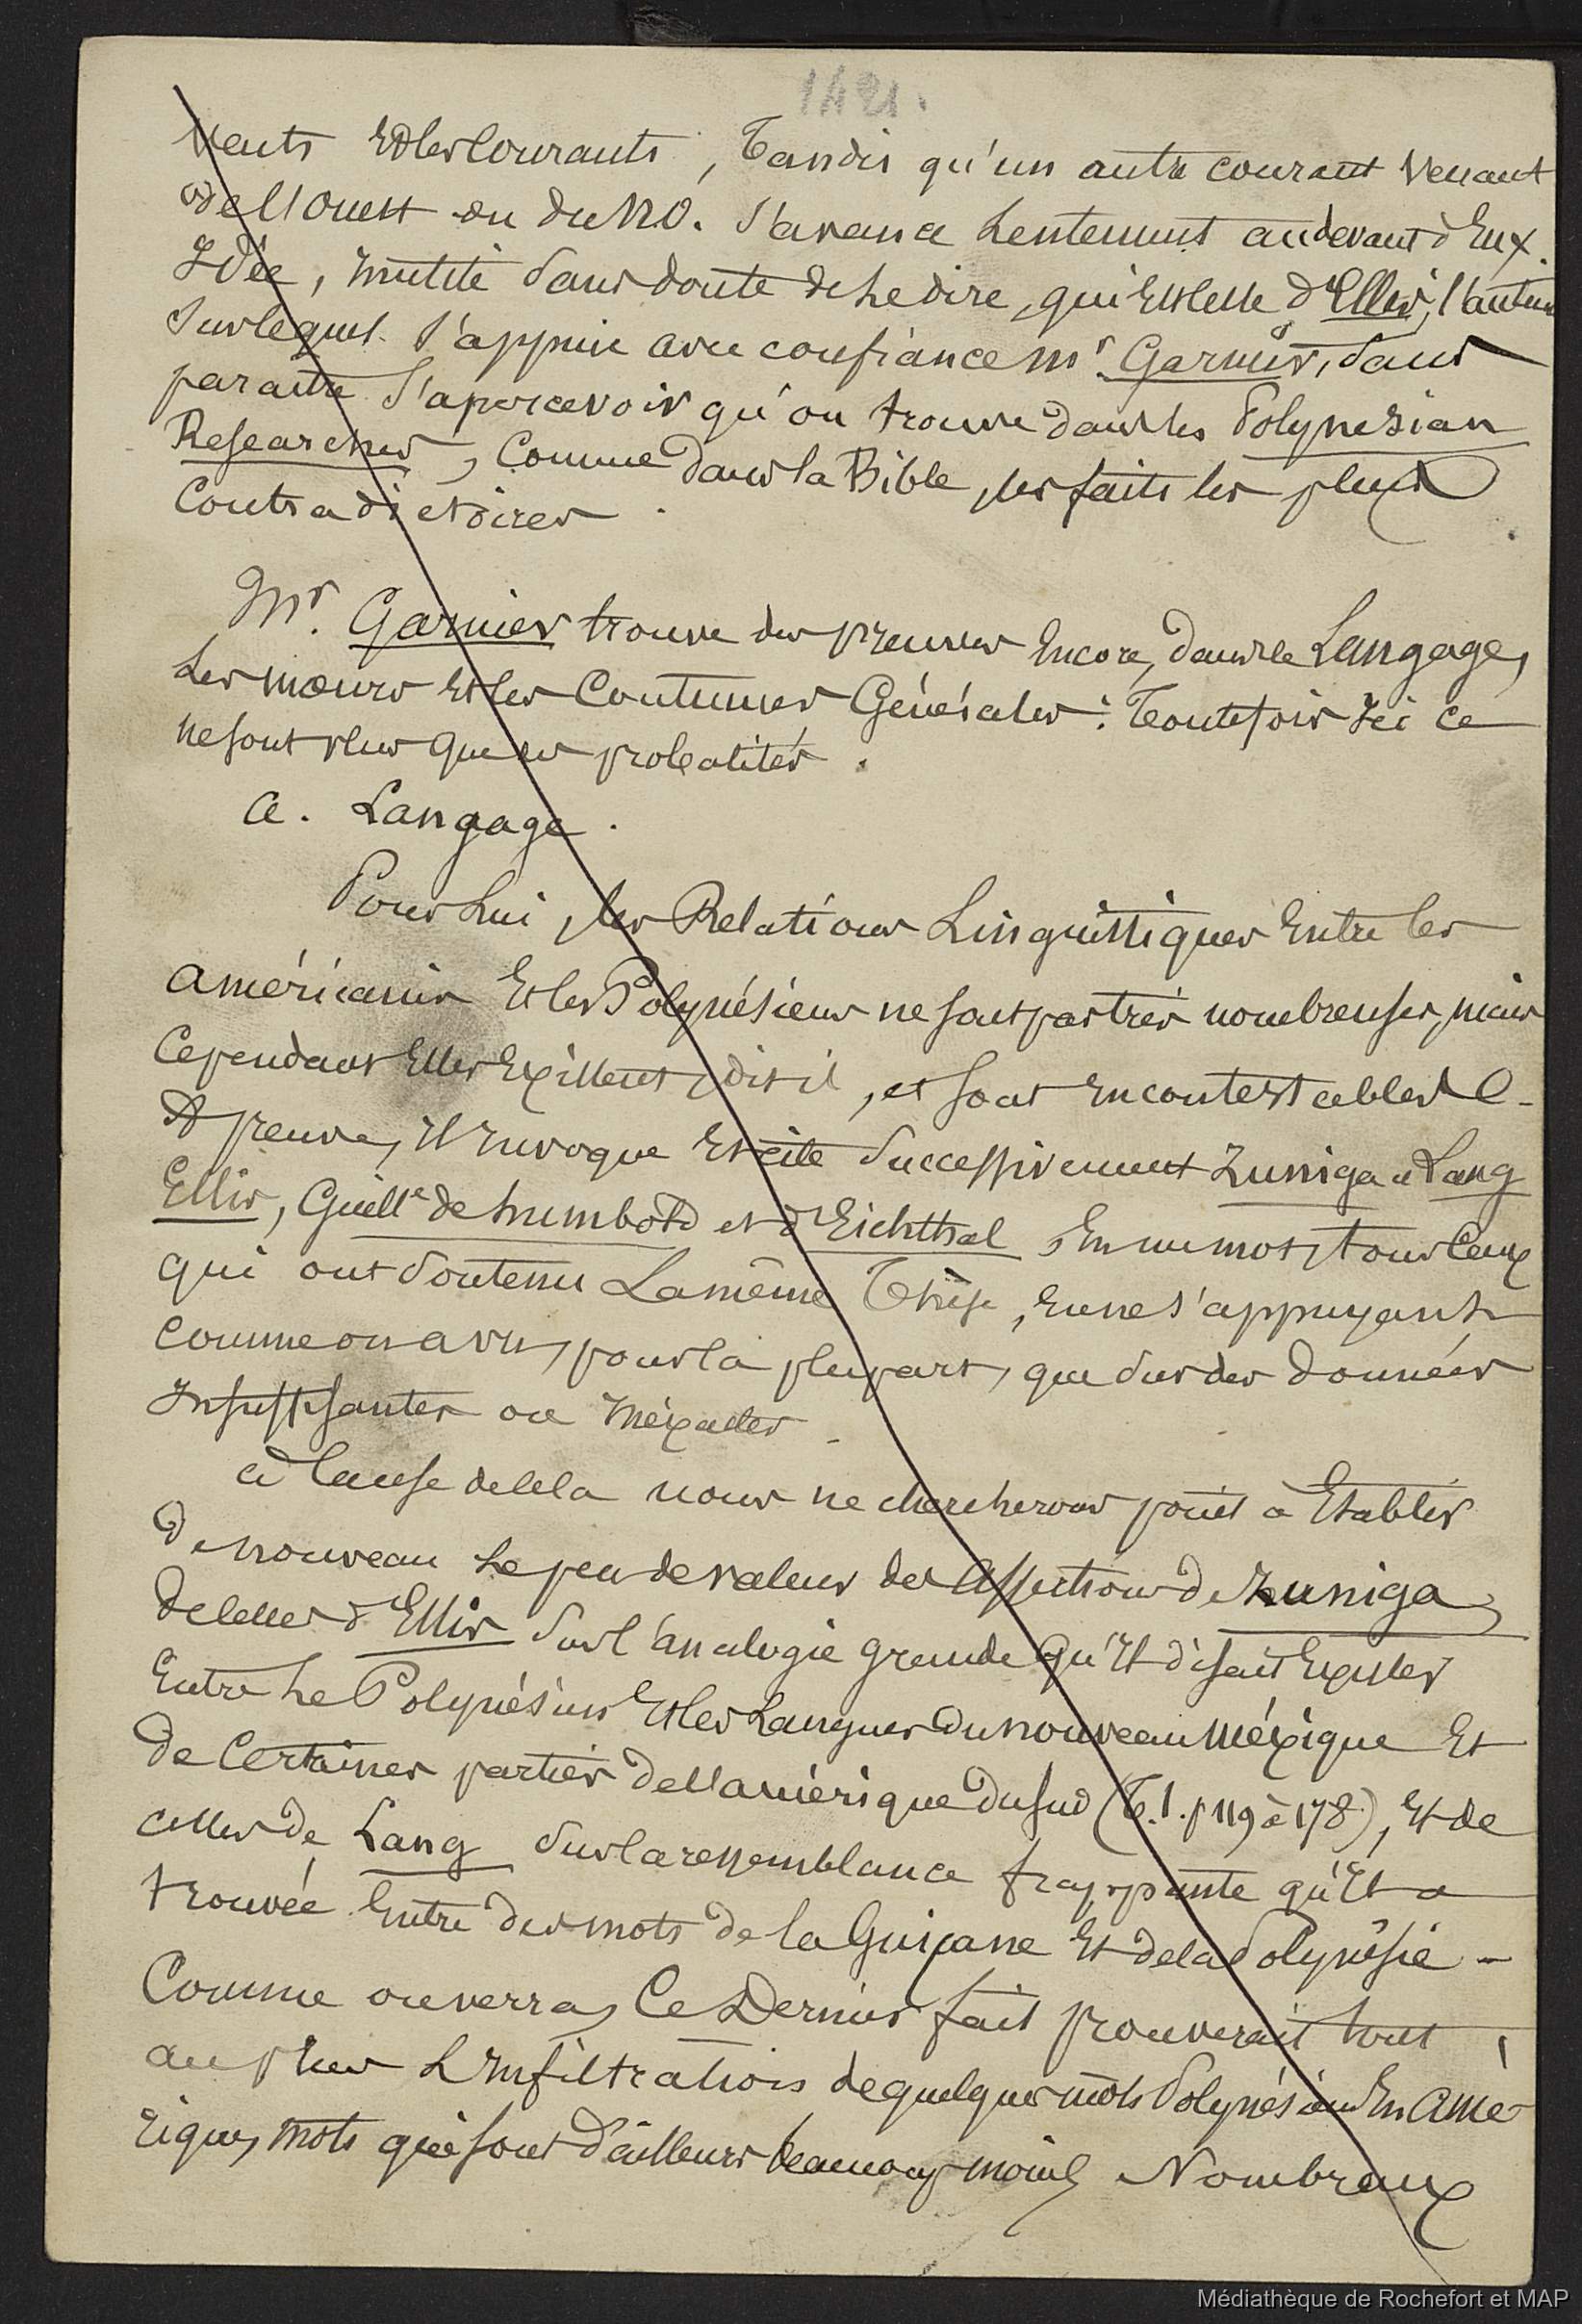 1421.
vents Et les Courants, Tandis qu'un autre courant venant
de l'Ouest ou du NO. s'avance Lentement au devant d'Eux.
Idée, inutile sans doute de Le dire, qui Est celle d'Ellis, l'auteur
sur lequel s'appuie avec confiance Mr Garnier, sans
paraitre s'apercevoir qu'on trouve dans les Polynesian
Researches, Comme dans la Bible, les faits les plus
Contradictoires.
Mr. Garnier trouve des preuves Encore, dans le Langage,
Les moeurs Et les Coutumes Générales: Toutefois Ici ce
ne sont plus que des probalités.
a. Langage.
Pour Lui, les Relations Linguistiques Entre les
américains Et les Polynésiens ne sont pas très nombreuses, mais
Cependant Elles Existent, dit il, et sont incontestables
preuve, Il invoque Et cite successivement Zuniga Lang
Ellis, Guille de humbold et d'Eichthal, En un mot, tous Ceux
qui ont soutenu La même Thèse, En ne s'appuyant
comme on a vu, pour la plupart, que sur des données
Insuffisantes ou inéxactes.
à Cause de Cela nous ne chercherons point à Etablir
De nouveau Le peu de valeur des assertions de Zuniga,
de celles d'Ellis sur l'analogie grande qu'Il disait Exister
Entre Le Polynésien Et les Langues du nouveau Méxique Et
de Certaines parties de l'amérique du sud (T. 1. p 119 à 178), Et de
celles de Lang sur la ressemblance frappante qu'Il a
trouvée Entre des mots de la Guyane Et de la Polynésie -
Comme on verra, Ce Dernier fait prouverait tout
au plus L'Infiltration de quelques mots Polynésiens En Amé-
rique, mots qui sont d'ailleurs beaucoup moins Nombreux
Médiathèque de Rochefort et MAP